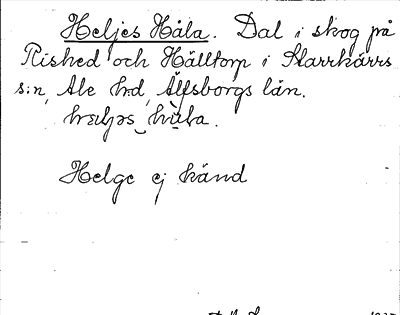 Heljes Håla. Dal i skog på
Rished och Hålltorp i Starrkärrs
s:n, Ale h:d, Älfsborgs län.
Helge ej känd